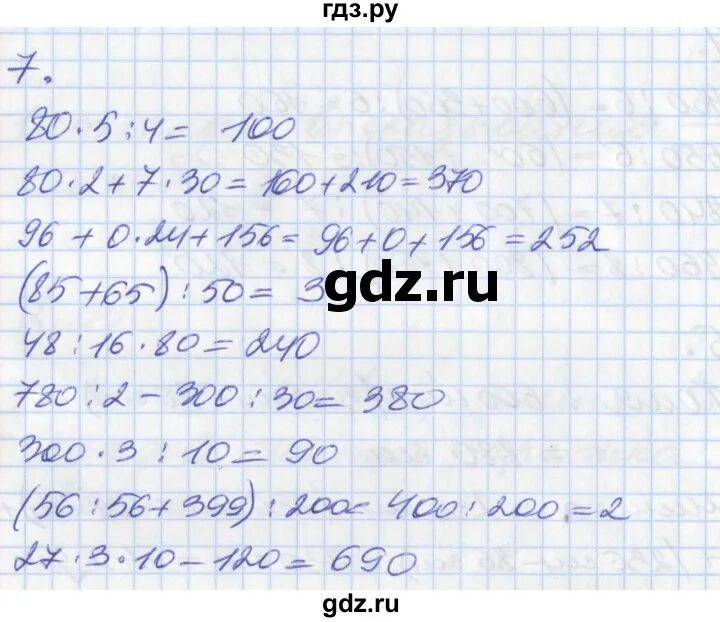 гдз.ру
7.
80·5:4= 100
80·2+7·30=160+210=370
96+0·24+156=96+0+156=252
(85+65):50= 3
gdz.ru
48:16·80=240
780:2-300:30=380
300·3:10=90
(56:56+399):200=400:200=2
27:3·10-120=690
gdz.ru